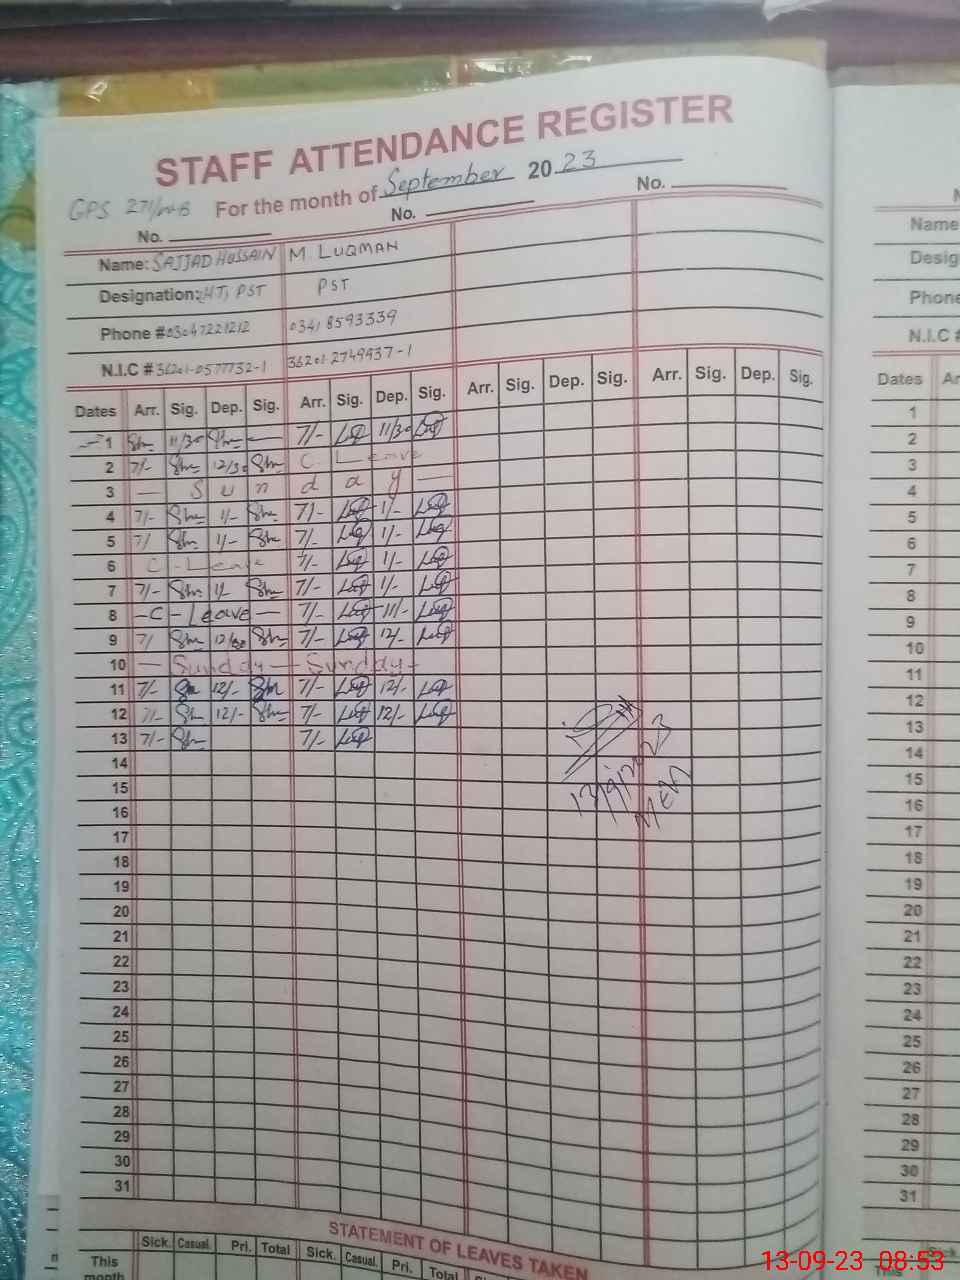 STAFF ATTENDANCE REGISTER
GPS 271/WB For the month of September 2023
No. No. No.
Name: SAJJAD HUSSAIN M. LUQMAN
Designation: HT, PST PST
Phone # 03047221212 0341 8593339
N.I.C # 36201-0577732-1 36201-2749937-1
Dates Arr. Sig. Dep. Sig. Arr. Sig. Dep. Sig. Arr. Sig. Dep. Sig. Arr. Sig. Dep. Sig.
1 11/30 7/- 11/30
2 7/- 12/30 C. Leave
3 — S u n d a y —
4 7/- 1/- 7/- 1/-
5 7/ 1/- 7/- 1/-
6 C-Leave 7/- 1/-
7 7/- 1/- 7/- 1/-
8 -C-Leave- 7/- 11/-
9 7/ 7/- 12/-
10 — Sunday — Sunday -
11 7/- 12/- 7/- 12/-
12 7/- 12/- 7/- 12/-
13 7/- 7/-
13/9/2023
14
MEA
15
16
17
18
19
20
21
22
23
24
25
26
27
28
29
30
31
STATEMENT OF LEAVES TAKEN
Sick. Casual. Pri. Total Sick. Casual. Pri. Total
This month
Name
Desig
Phone
N.I.C #
Dates Ar
1
2
3
4
5
6
7
8
9
10
11
12
13
14
15
16
17
18
19
20
21
22
23
24
25
26
27
28
29
30
31
Sick.
This
13-09-23 08:53